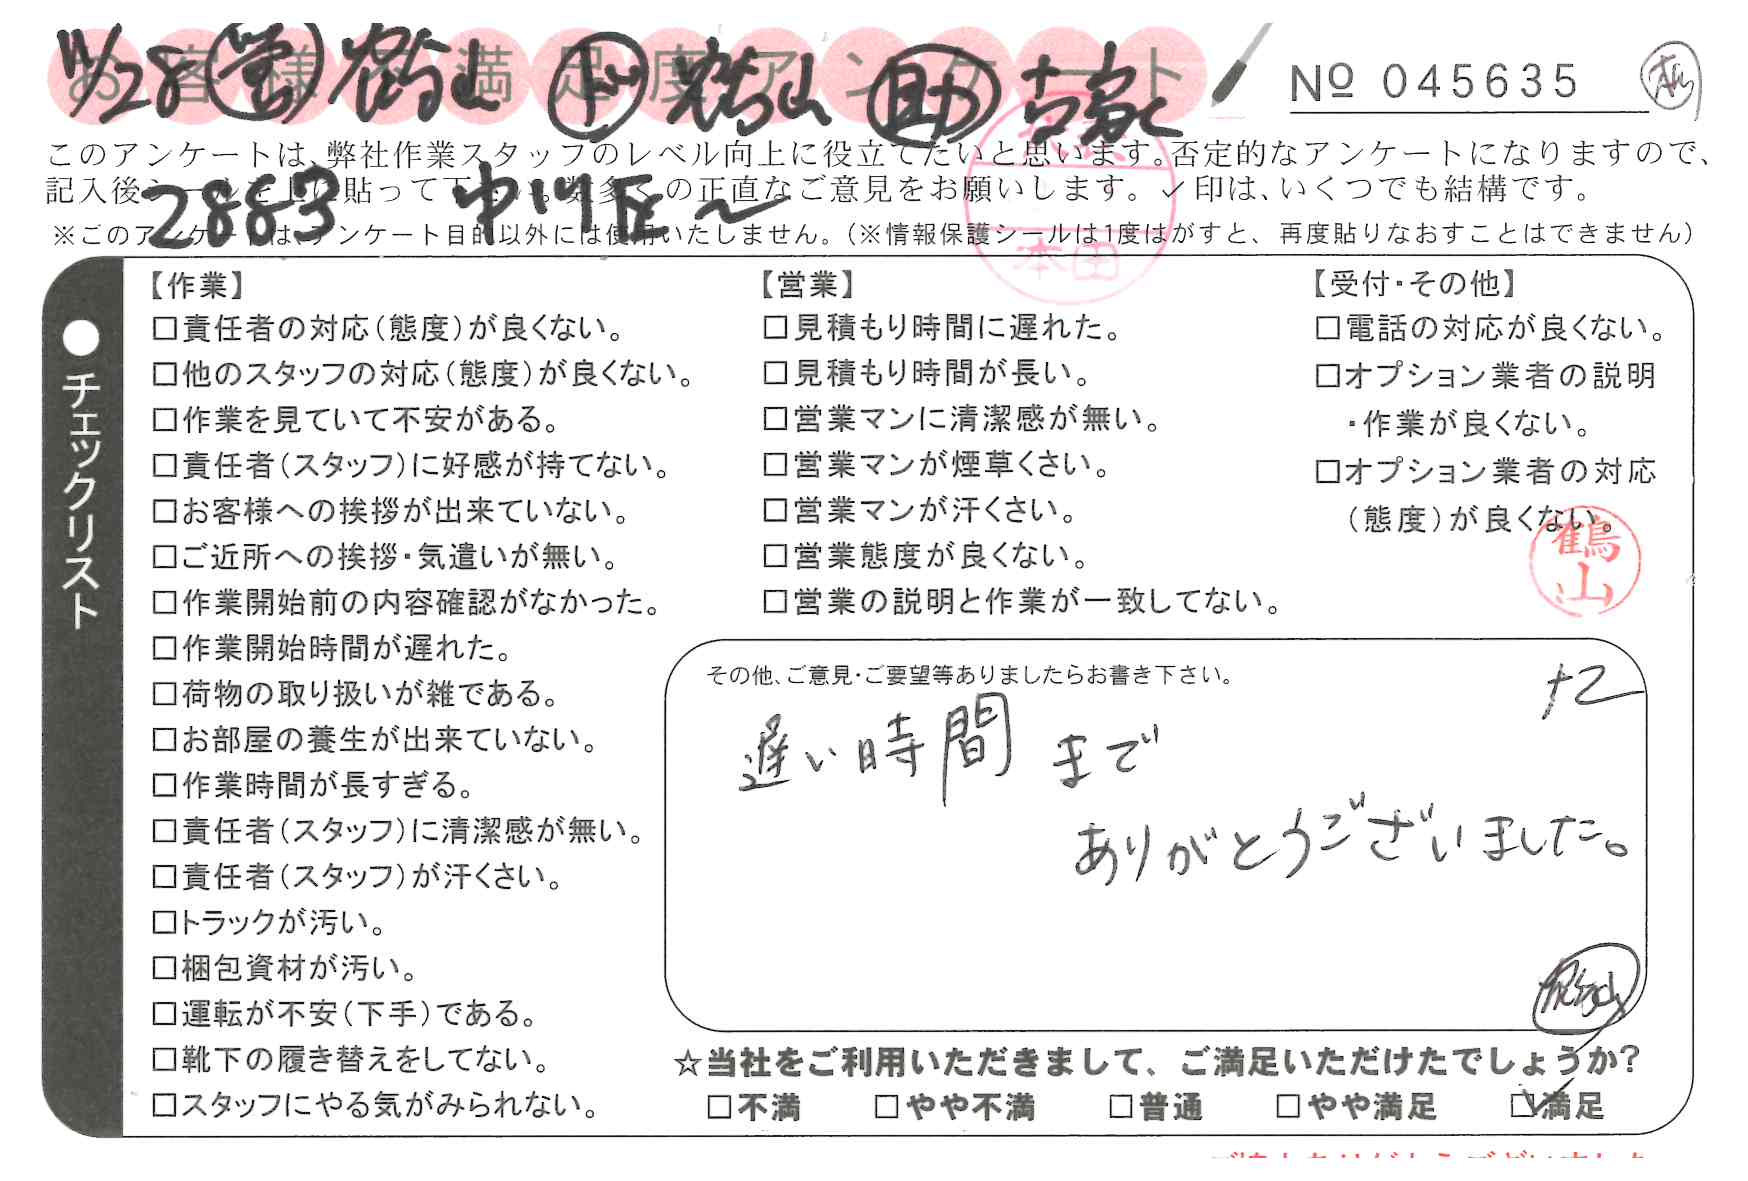 お客様満足度アンケート
11/28 営 鶴山 ド 鶴山 助 古家
No 045635
このアンケートは、弊社作業スタッフのレベル向上に役立てたいと思います。否定的なアンケートになりますので、
記入後シールを上に貼って下さい。数多くの正直なご意見をお願いします。✓印は、いくつでも結構です。
2883 中川区〜
※このアンケートは、アンケート目的以外には使用いたしません。(※情報保護シールは1度はがすと、再度貼りなおすことはできません)
本田
●チェックリスト
【作業】
□責任者の対応(態度)が良くない。
□他のスタッフの対応(態度)が良くない。
□作業を見ていて不安がある。
□責任者(スタッフ)に好感が持てない。
□お客様への挨拶が出来ていない。
□ご近所への挨拶・気遣いが無い。
□作業開始前の内容確認がなかった。
□作業開始時間が遅れた。
□荷物の取り扱いが雑である。
□お部屋の養生が出来ていない。
□作業時間が長すぎる。
□責任者(スタッフ)に清潔感が無い。
□責任者(スタッフ)が汗くさい。
□トラックが汚い。
□梱包資材が汚い。
□運転が不安(下手)である。
□靴下の履き替えをしてない。
□スタッフにやる気がみられない。
【営業】
□見積もり時間に遅れた。
□見積もり時間が長い。
□営業マンに清潔感が無い。
□営業マンが煙草くさい。
□営業マンが汗くさい。
□営業態度が良くない。
□営業の説明と作業が一致してない。
【受付・その他】
□電話の対応が良くない。
□オプション業者の説明
・作業が良くない。
□オプション業者の対応
(態度)が良くない。
鶴山
その他、ご意見・ご要望等ありましたらお書き下さい。
+2
遅い時間まで
ありがとうございました。
☆当社をご利用いただきまして、ご満足いただけたでしょうか?
□不満 □やや不満 □普通 □やや満足 ☑満足